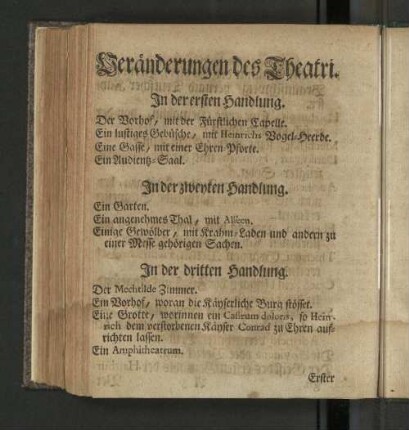 Veränderungen des Theatri.
In der ersten Handlung.
Der Vorhof, mit der Fürstlichen Capelle.
Ein lustiges Gebüsche, mit Heinrichs Vogel-Heerde.
Eine Gasse, mit einer Ehren-Pforte.
Ein Audientz-Saal.
In der zweyten Handlung.
Ein Garten.
Ein angenehmes Thal, mit Alleen.
Einige Gewölber, mit Krahm-Laden und andern zu
einer Messe gehörigen Sachen.
In der dritten Handlung.
Der Mechtilde Zimmer.
Ein Vorhof, woran die Käyserliche Burg stösset.
Eine Grotte, worinnen ein Castrum doloris, so Hein-
rich dem verstorbenen Käyser Conrad zu Ehren auf-
richten lassen.
Ein Amphitheatrum.
Erster